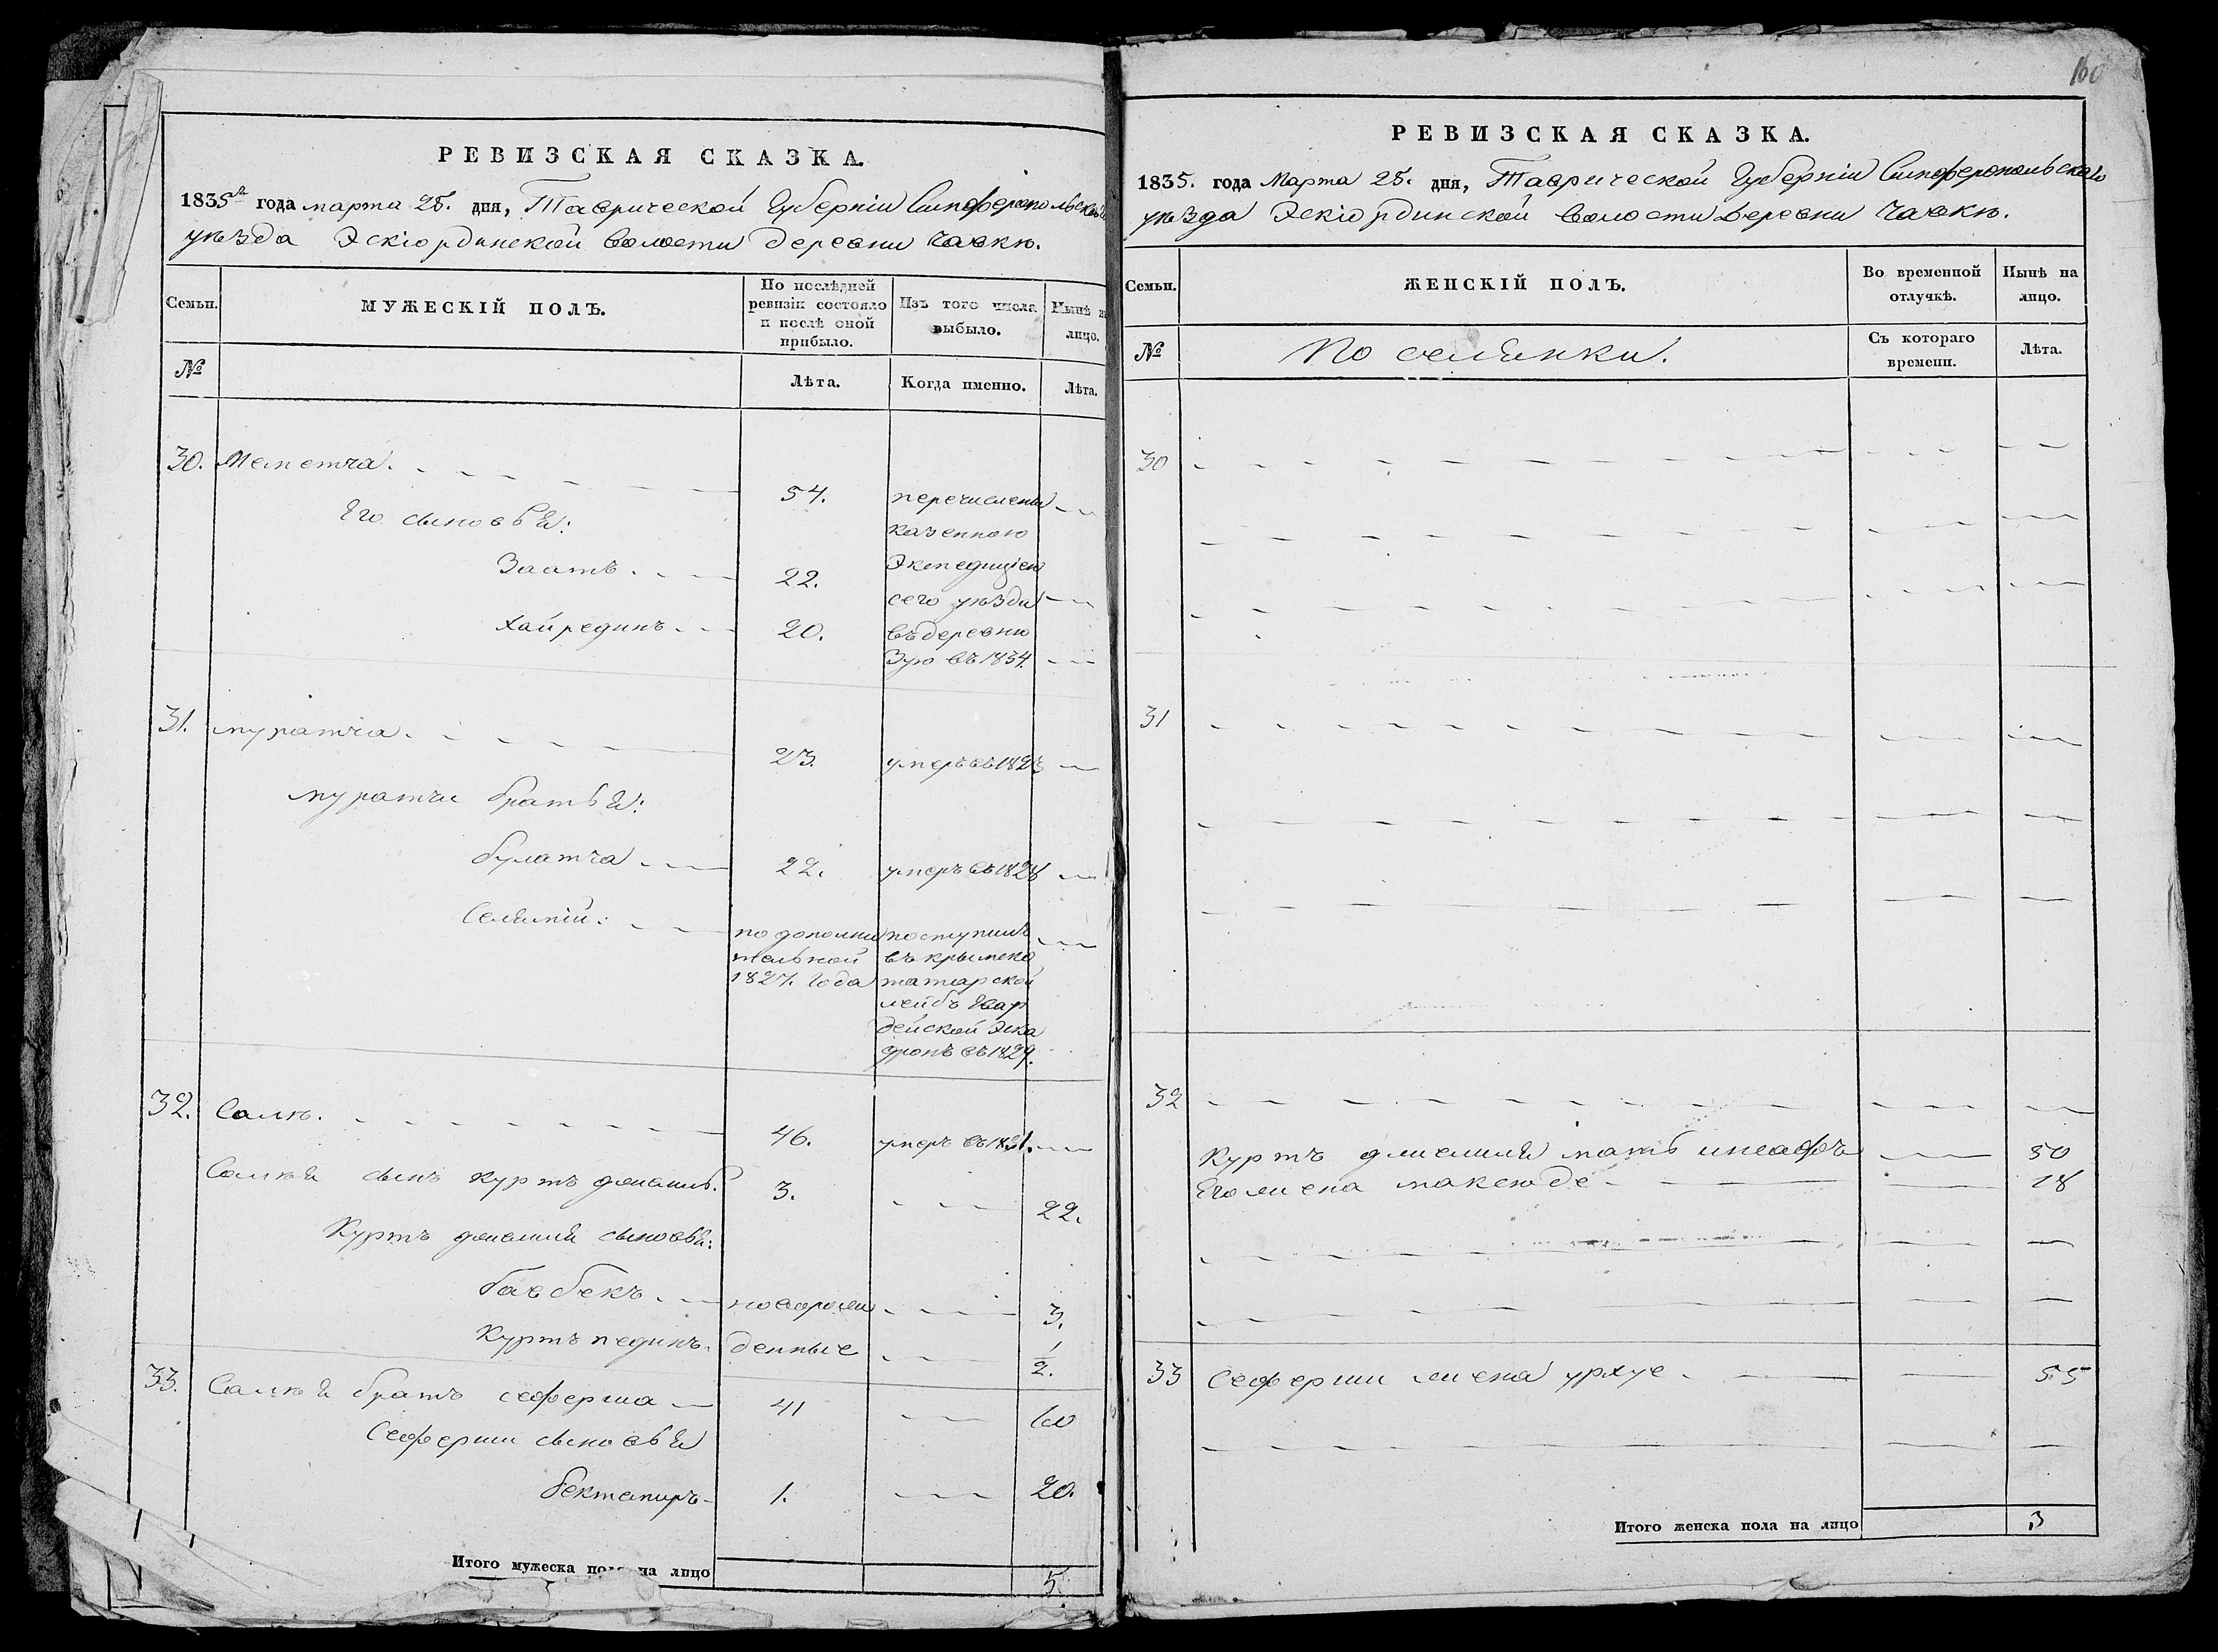 РЕВИЗСКАЯ СКАЗКА.
1835го года марта 25. дня, Таврической Губерніи Симферопольскаго
уѣзда Эскіординской волости деревни Чавкѣ.
Семьи. МУЖЕСКІЙ ПОЛЪ. По послѣдней ревизіи состояло и послѣ оной прибыло. Изъ того числа выбыло. Нынѣ на лицо.
№ Лѣта. Когда именно. Лѣта.
30. Меметча. 54. перечислены
Его сыновья: казенною
Заатъ. 22. Экспедиціею
сего уѣзда
Хайрединъ. 20. въ деревню
Зую въ 1834.
31. Муратча. 23. умеръ въ 1823
Муратчи братья:
Булатча 22. умеръ въ 1828
Селямій: по дополни поступилъ
тельной въ крымско
1827. года татарской
лейбъ Гвар
дейской Эска
дронъ въ 1829.
32. Салѣ. 46. умеръ въ 1831.
Салѣя сынъ Куртъ 3. 22.
Куртъ сыновья:
Бавбекъ новорож 3.
Куртъ денные 1/2.
33. Салѣя братъ Сеферша 41 60
Сеферши сыновья
Бектемиръ 1. 20.
Итого мужеска пола на лицо 5.
160
РЕВИЗСКАЯ СКАЗКА.
1835. года Марта 25. дня, Таврической Губерніи Симферопольскаго
уѣзда Эскіординской волости деревни Чавкѣ.
Семьи. ЖЕНСКІЙ ПОЛЪ. Во временной отлучкѣ. Нынѣ на лицо.
№ Поселянки. Съ котораго времени. Лѣта.
30
31
32
Куртъ мать инсафъ 50
Его жена максюде 18
33 Сеферши жена урхуе 55
Итого женска пола на лицо 3